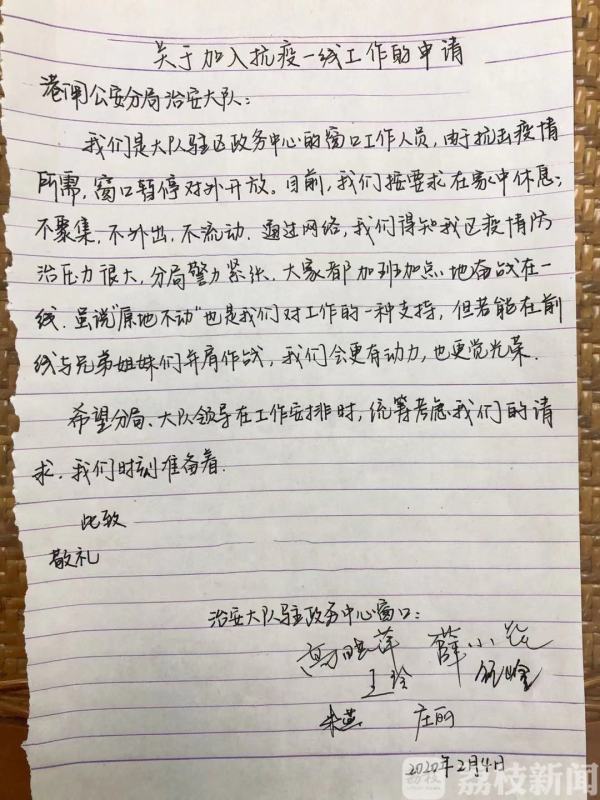 关于加入抗疫一线工作的申请
港闸公安分局治安大队:
我们是大队驻区政务中心的窗口工作人员,由于抗击疫情
所需,窗口暂停对外开放。目前,我们按要求在家中休息:
不聚集,不外出,不流动。通过网络,我们得知我区疫情防
治压力很大,分局警力紧张。大家都加班加点地奋战在一
线。虽说"原地不动"也是我们对工作的一种支持,但若能在前
线与兄弟姐妹们并肩作战,我们会更有动力,也更觉光荣.
希望分局、大队领导在工作安排时,统筹考虑我们的请
求.我们时刻准备着.
此致
敬礼
治安大队驻政务中心窗口:
高晓萍 薛小花
王玲
朱燕 庄丽
2020年2月4日
荔枝新闻